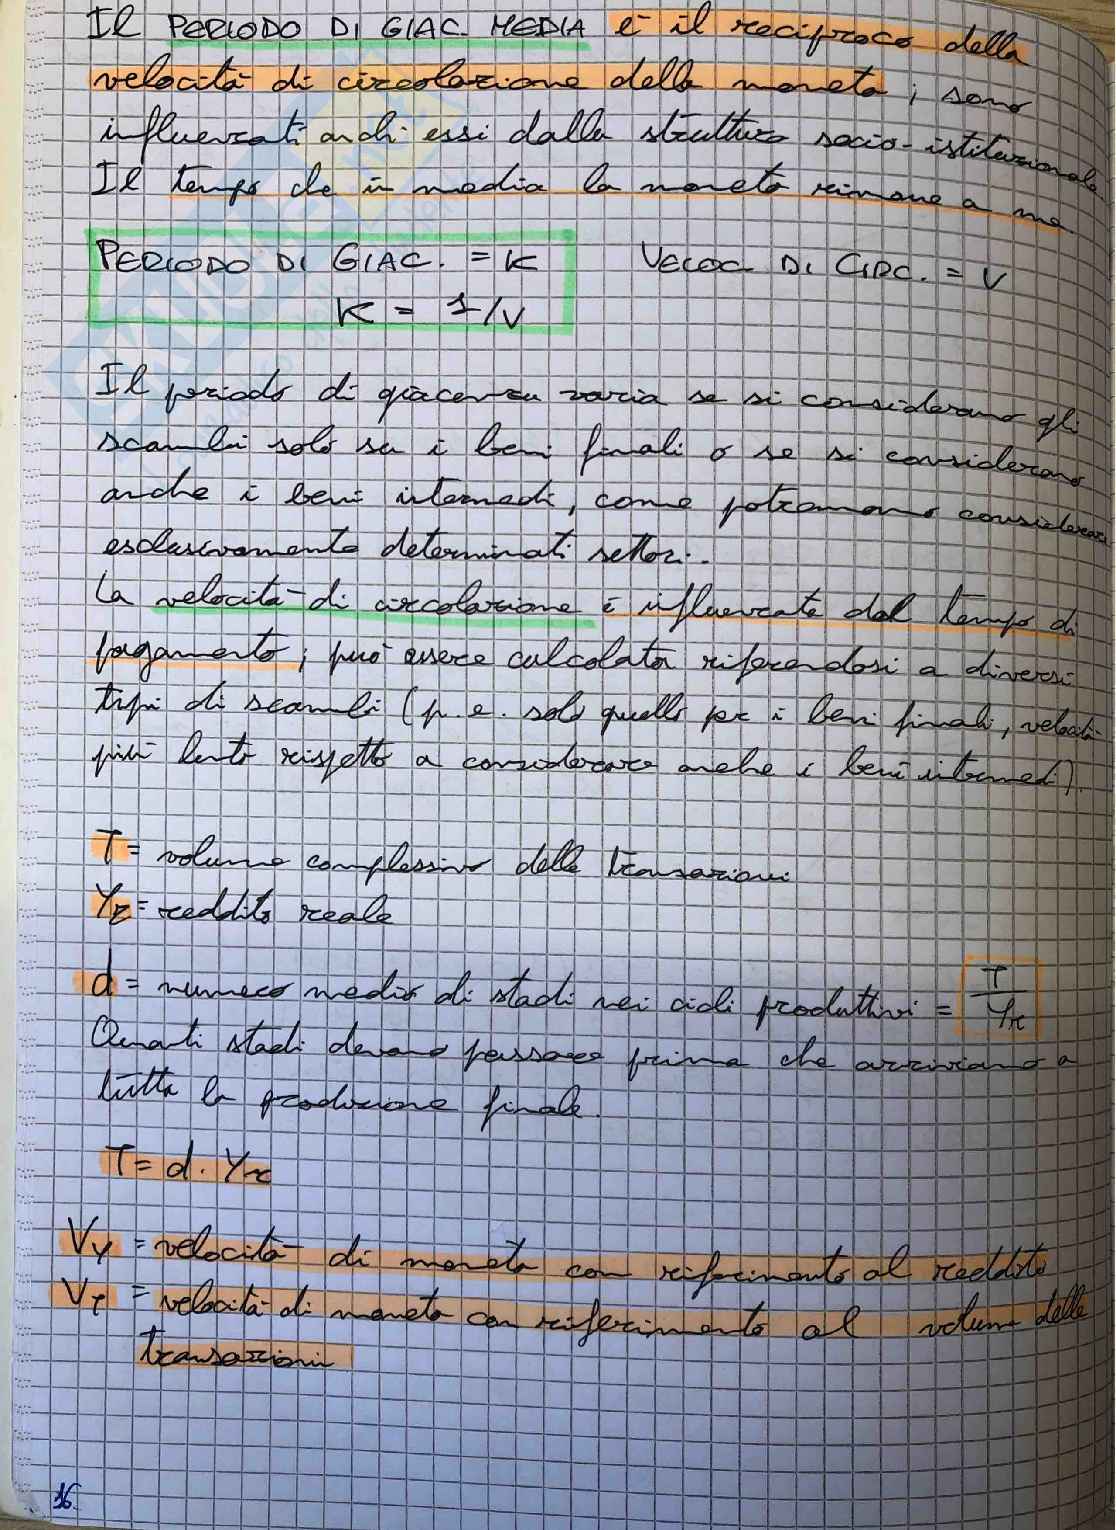 Il PERIODO DI GIAC. MEDIA è il reciproco della
velocità di circolazione della moneta; sono
influenzati anch'essi dalla struttura socio-istituzionale
Il tempo che in media la moneta rimane a me
PERIODO DI GIAC. = K VELOC. DI CIRC. = V
K = 1/V
Il periodo di giacenza varia se si considerano gli
scambi solo su i beni finali o se si considerano
anche i beni intermedi, come potremmo considerare
esclusivamente determinati settori.
La velocità di circolazione è influenzata dal tempo di
pagamento; può essere calcolata riferendosi a diversi
tipi di scambi (p.e. solo quello per i beni finali, velocità
più lenta rispetto a considerare anche i beni intermedi).
T = volume complessivo delle transazioni
Yr = reddito reale
d = numero medio di stadi nei cicli produttivi = T/Yr
Quanti stadi devono passare prima che arriviamo a
tutta la produzione finale.
T = d · Yr
Vy = velocità di moneta con riferimento al reddito
VT = velocità di moneta con riferimento al volume delle
transazioni
16